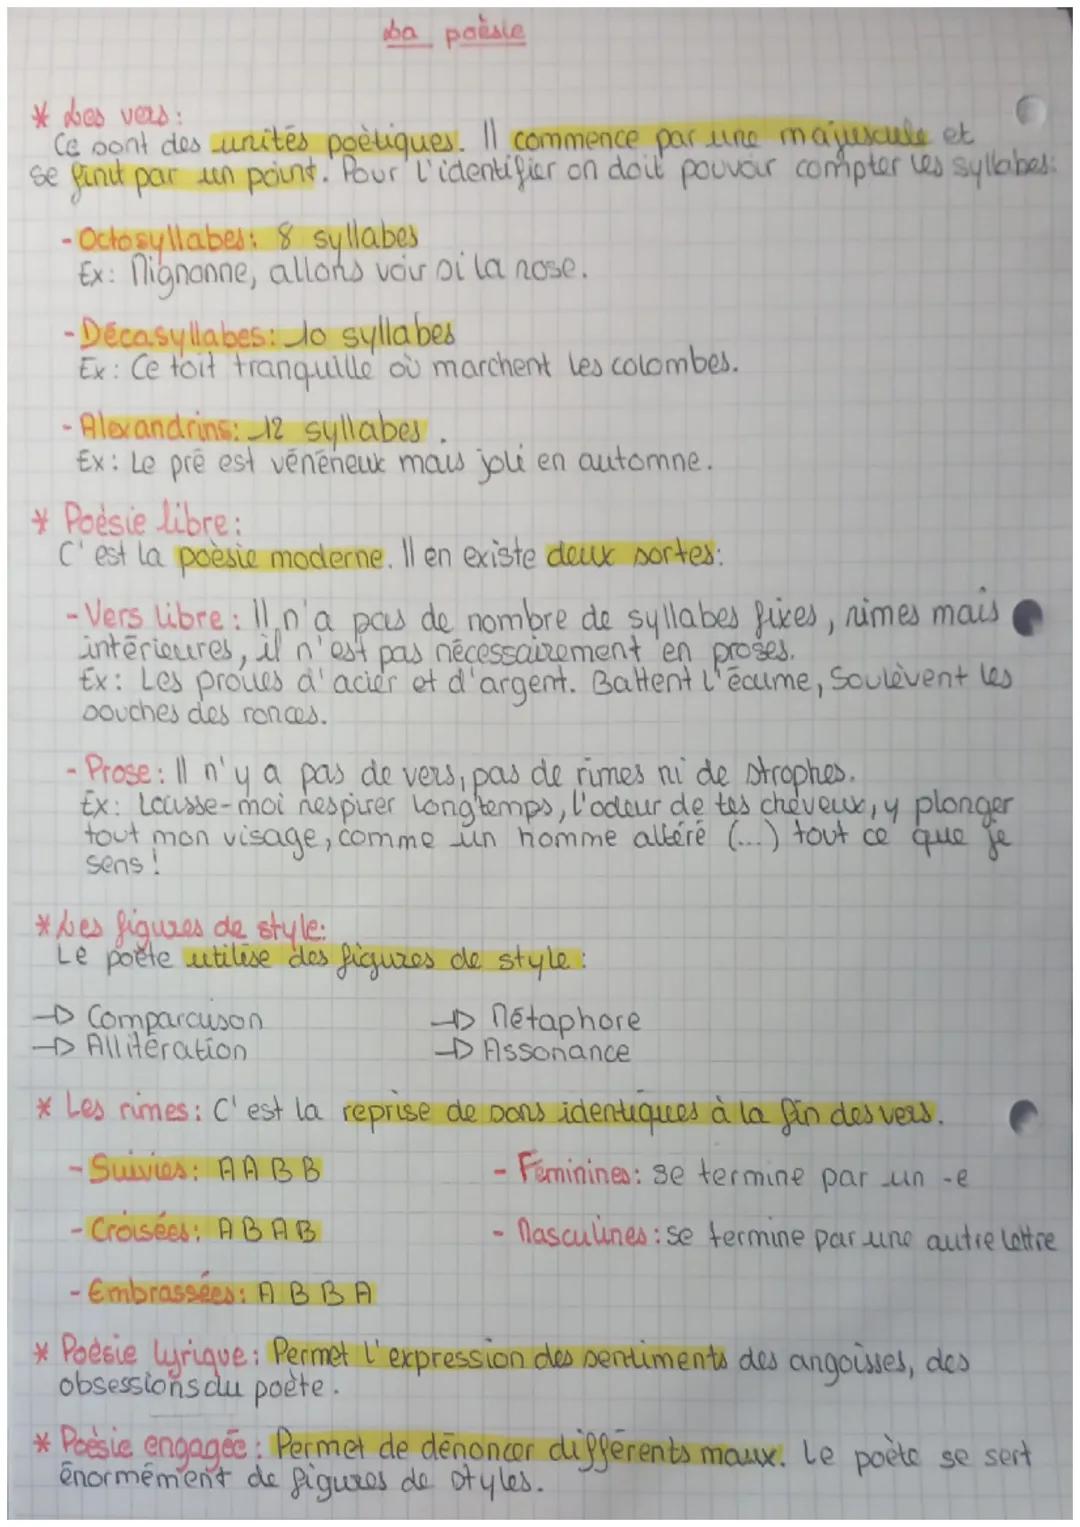 La poèsie
* Les vers :
Ce sont des unités poètiques. Il commence par une majuscule et
se finit par un point. Pour l'identifier on doit pouvoir compter les syllabes:
- Octosyllabes: 8 syllabes
Ex: Mignonne, allons voir si la rose.
- Décasyllabes: 10 syllabes
Ex: Ce toit tranquille où marchent les colombes.
- Alexandrins: 12 syllabes.
Ex: Le pré est vénéneux mais joli en automne.
* Poèsie libre:
C'est la poèsie moderne. Il en existe deux sortes:
- Vers libre: Il n'a pas de nombre de syllabes fixes, rimes mais
intérieures, il n'est pas nécessairement en proses.
Ex: Les proues d'acier et d'argent. Battent l'écume, Soulèvent les
souches des ronces.
- Prose: Il n'y a pas de vers, pas de rimes ni de strophes.
Ex: Laisse-moi respirer longtemps, l'odeur de tes cheveux, y plonger
tout mon visage, comme un homme altéré (...) tout ce que je
sens !
* Les figures de style:
Le poète utilise des figures de style :
→ Comparaison → Métaphore
→ Allitération → Assonance
* Les rimes: C'est la reprise de sons identiques à la fin des vers.
- Suivies: A A B B - Féminines: se termine par un -e
- Croisées: A B A B - Masculines: se termine par une autre lettre
- Embrassées: A B B A
* Poèsie lyrique: Permet l'expression des sentiments des angoisses, des
obsessions du poète.
* Poèsie engagée: Permet de dénoncer différents maux. Le poète se sert
énormément de figures de styles.